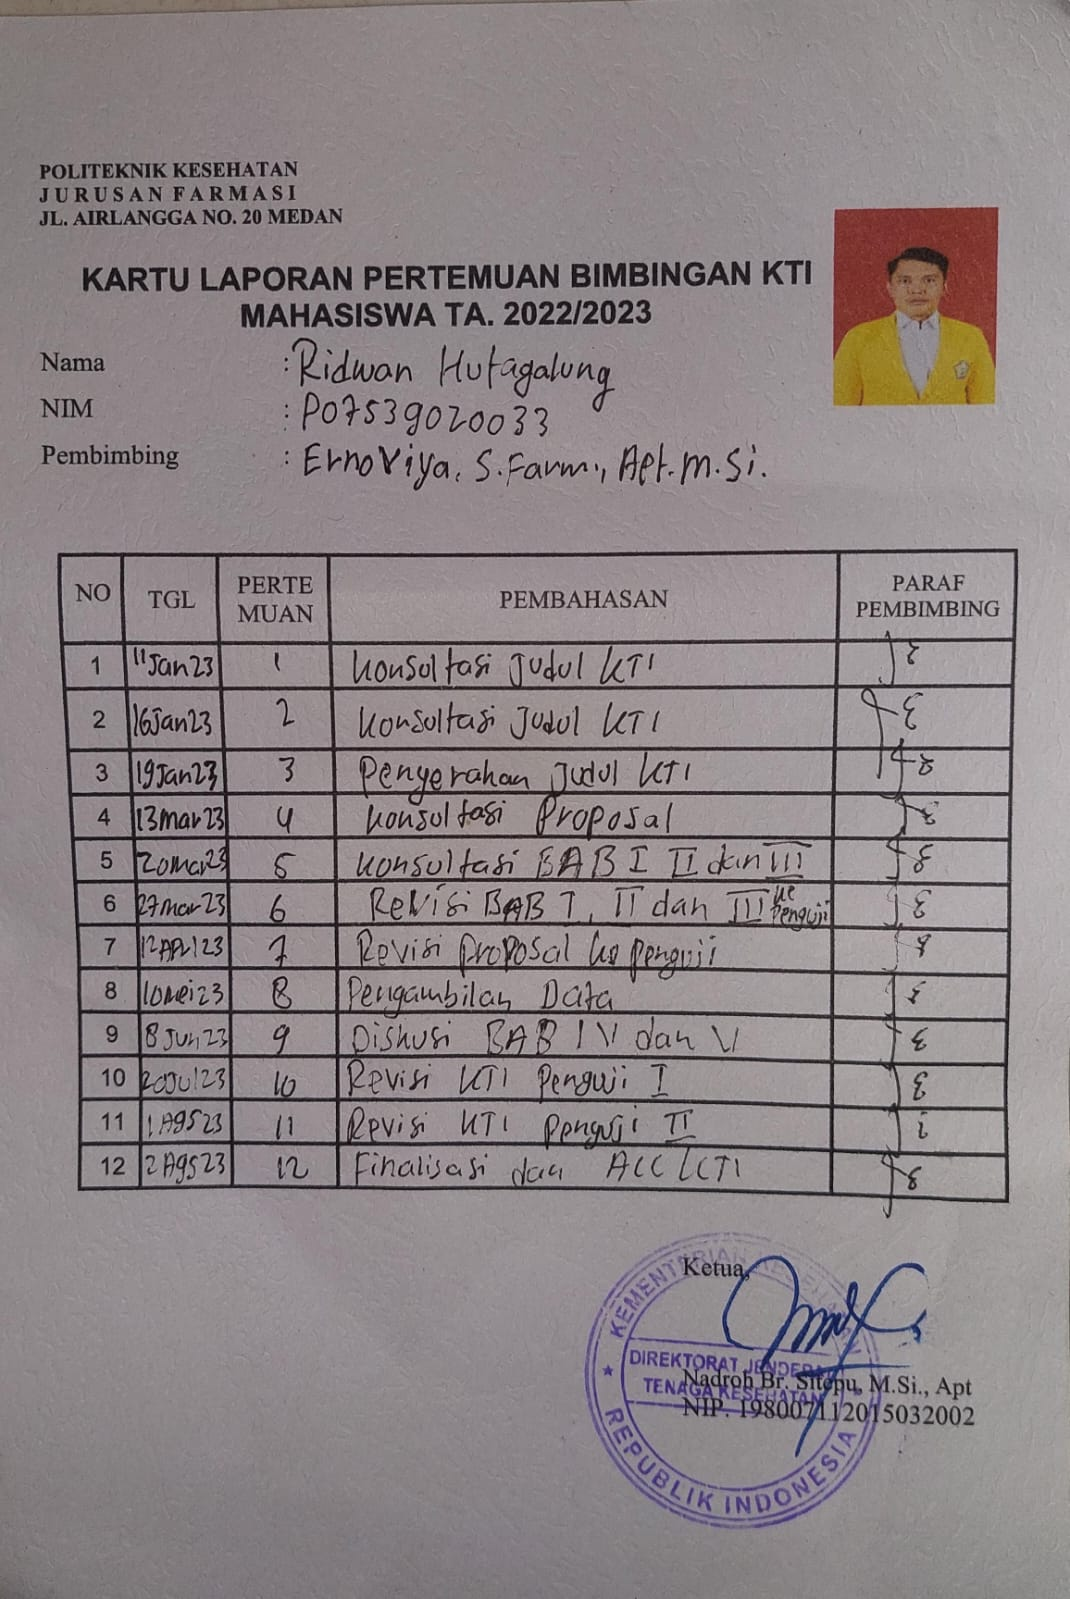 POLITEKNIK KESEHATAN
JURUSAN FARMASI
JL. AIRLANGGA NO. 20 MEDAN
KARTU LAPORAN PERTEMUAN BIMBINGAN KTI
MAHASISWA TA. 2022/2023
Nama : Ridwan Hutagalung
NIM : P07539020033
Pembimbing : Ernoviya. S.Farm., Apt. M.Si.
NO TGL PERTE MUAN PEMBAHASAN PARAF PEMBIMBING
1 11 Jan 23 1 Konsultasi Judul KTI
2 16 Jan 23 2 Konsultasi Judul KTI
3 19 Jan 23 3 Penyerahan Judul KTI
4 13 Mar 23 4 Konsultasi Proposal
5 20 Mar 23 5 Konsultasi BAB I II dan III
6 27 Mar 23 6 Revisi BAB I, II dan III ke Penguji
7 12 Apr 23 7 Revisi Proposal ke penguji
8 10 Mei 23 8 Pengambilan Data
9 8 Jun 23 9 Diskusi BAB IV dan V
10 20 Jul 23 10 Revisi KTI Penguji I
11 1 Ags 23 11 Revisi KTI Penguji II
12 2 Ags 23 12 Finalisasi dan ACC KTI
Ketua,
Nadroh Br. Sitepu, M.Si., Apt
NIP. 198007112015032002
KEMENTERIAN KESEHATAN
DIREKTORAT JENDERAL
TENAGA KESEHATAN
REPUBLIK INDONESIA